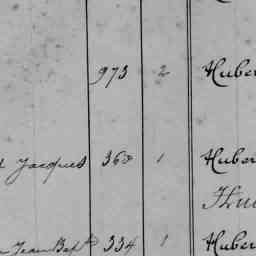 973 2 Huber
Jacques 360 1 Huber
Jean Bapt 334 1 Huber